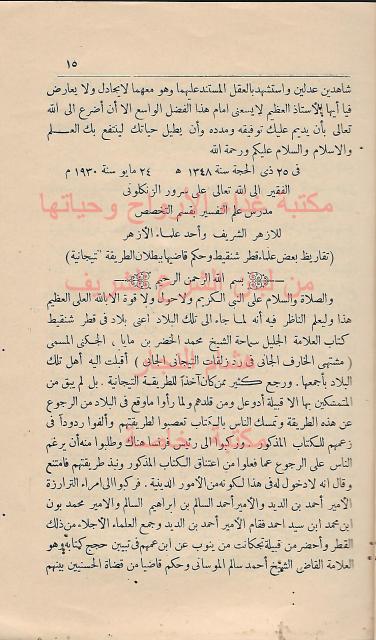 ١٥
شاهدين عدلين واستشهد بالعقل المستند عليهما وهو معهما لايجادل ولا يعارض
فيا أيها الأستاذ العظيم لايسعنى امام هذا الفضل الواسع الا أن أضرع الى الله
تعالى بأن يديم عليك توفيقه ومدده وأن يطيل حياتك لينتفع بك العلم
والاسلام والسلام عليكم ورحمة الله
فى ٢٥ ذى الحجة سنة ١٣٤٨ ه ٢٤ مايو سنة ١٩٣٠ م
الفقير الى الله تعالى على سرور الزنكلونى
مدرس علم التفسير بقسم التخصص
للازهر الشريف وأحد علماء الأزهر
(تقاريظ بعض علماء قطر شنقيط وحكم قاضيها ببطلان الطريقة "تيجانية)
بسم الله الرحمن الرحيم
والصلاة والسلام على النبى الكريم ولاحول ولا قوة الابالله العلى العظيم
هذا وليعلم الناظر فيه أنه لما جاء الى تلك البلاد أعنى بلاد فى قطر شنقيط
كتاب العلامة الجليل سماحة الشيخ محمد الخضر بن مايابى الجكنى المسمى
(مشتهى الخارف الجانى فى رد زلقات التيجانى الجانى) أقبلت اليه أهل تلك
البلاد بأجمعها. ورجع كثير من كان آخذا للطريقة التيجانية. بل لم يبق من
المتمسكين بها الا قبيلة أدوعل ومن قلدهم ولما رأوا ماوقع فى البلاد من الرجوع
عن هذه الطريقة وتمسك الناس بالكتاب تعصبوا لطريقتهم وألفوا ردودا فى
زعمهم للكتاب المذكور. وركبوا الى رئيس فرنسا هناك وطلبوا منه أن يرغم
الناس على الرجوع عما فعلوا من اعتناق الكتاب المذكور ونبذ طريقتهم فامتنع
وقال انه لادخول له فى هذا لكونه من الأمور الدينية. فركبوا الى امراء الترارزة
الأمير أحمد بن الديد والأمير أحمد السالم بن ابراهيم السالم والأمير محمد بون
ابن محمد ابن سيد احمد فقام الأمير أحمد بن الديد وجمع العلماء الأجلاء من ذلك
القطر وأحضر من قبيلة تجكانت من ينوب عن ابن عمهم فى تبيين حجج كتابه وهو
العلامة القاضى الشيخ أحمد سالم الموسانى وحكم قاضيا من قضاة الحسنيين بينهم
مكتبة غذاء الأرواح وحياتها
من
هشام
مكتبة